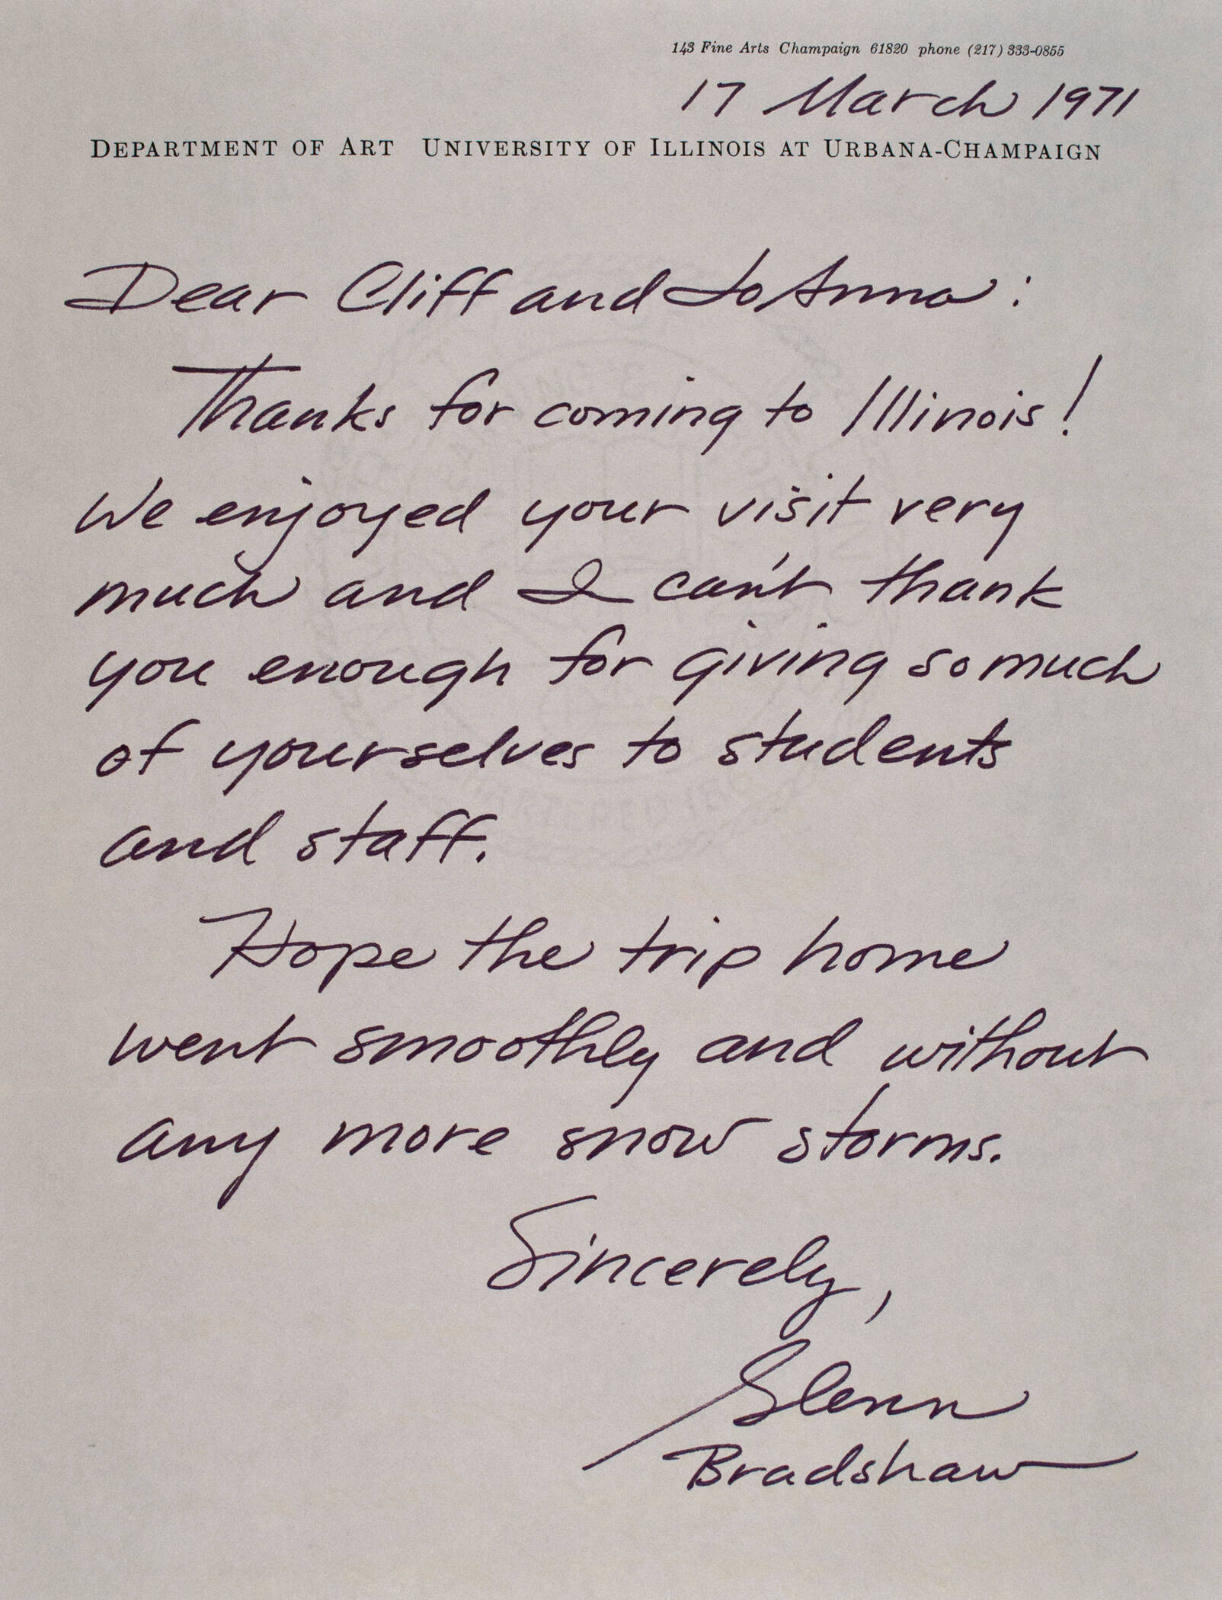 143 Fine Arts Champaign 61820 phone (217) 333-0855
17 March 1971
DEPARTMENT OF ART UNIVERSITY OF ILLINOIS AT URBANA-CHAMPAIGN
Dear Cliff and JoAnna:
Thanks for coming to Illinois!
We enjoyed your visit very
much and I can't thank
you enough for giving so much
of yourselves to students
and staff.
Hope the trip home
went smoothly and without
any more snow storms.
Sincerely,
Glenn
Bradshaw